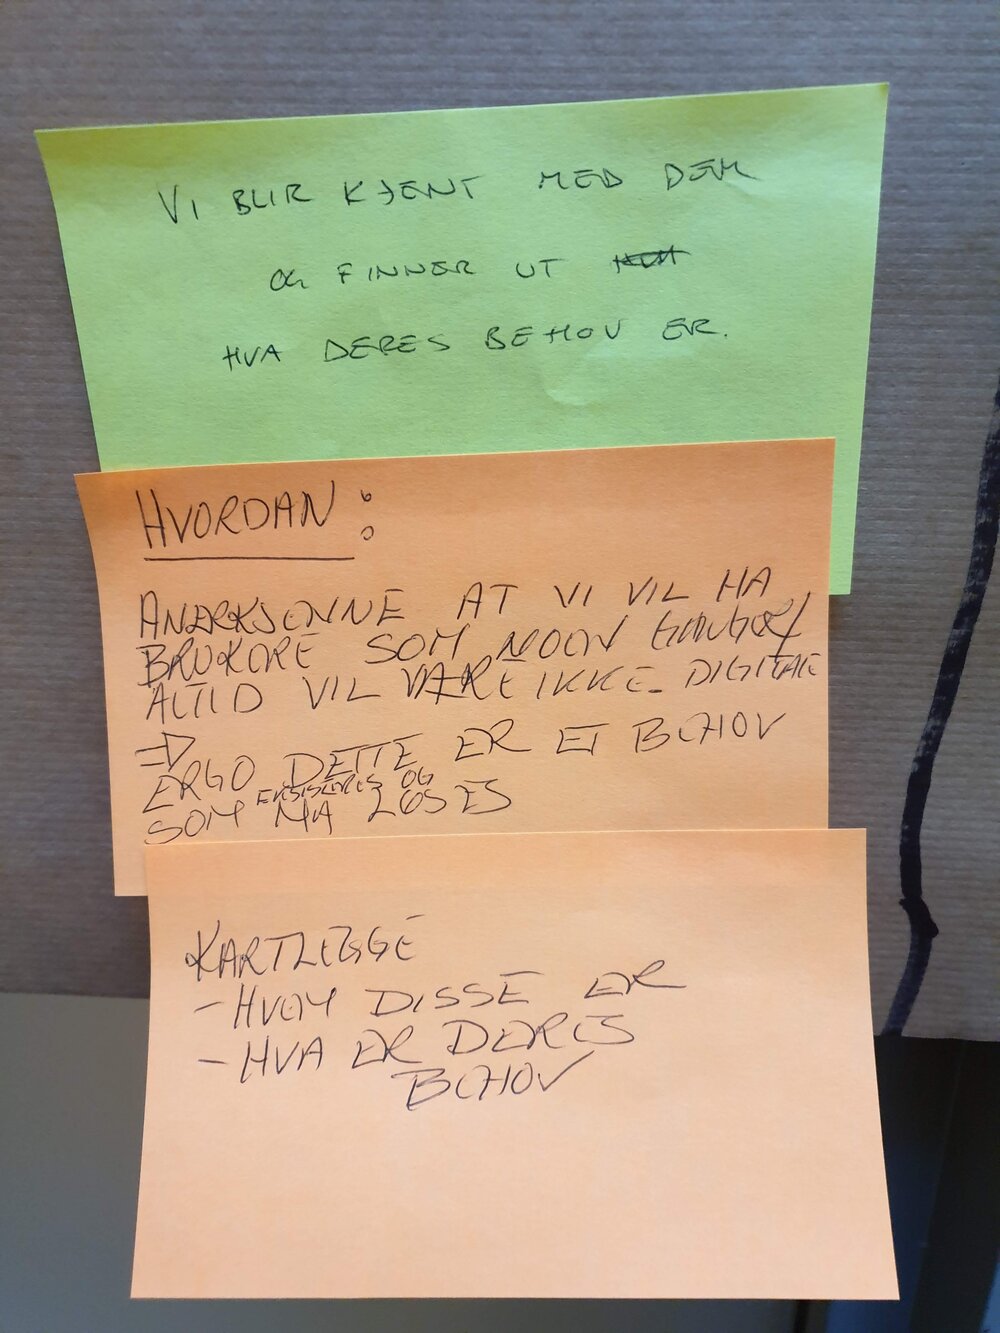 VI BLIR KJENT MED DEM
OG FINNER UT
HVA DERES BEHOV ER.
HVORDAN:
ANERKJENNE AT VI VIL HA
BRUKERE SOM NOEN GANGER/
ALTID VIL VÆRE IKKE-DIGITALE
⇒
ERGO DETTE ER ET BEHOV
EKSISTERER OG
SOM MÅ LØSES
KARTLEGGE
- HVEM DISSE ER
- HVA ER DERES
BEHOV